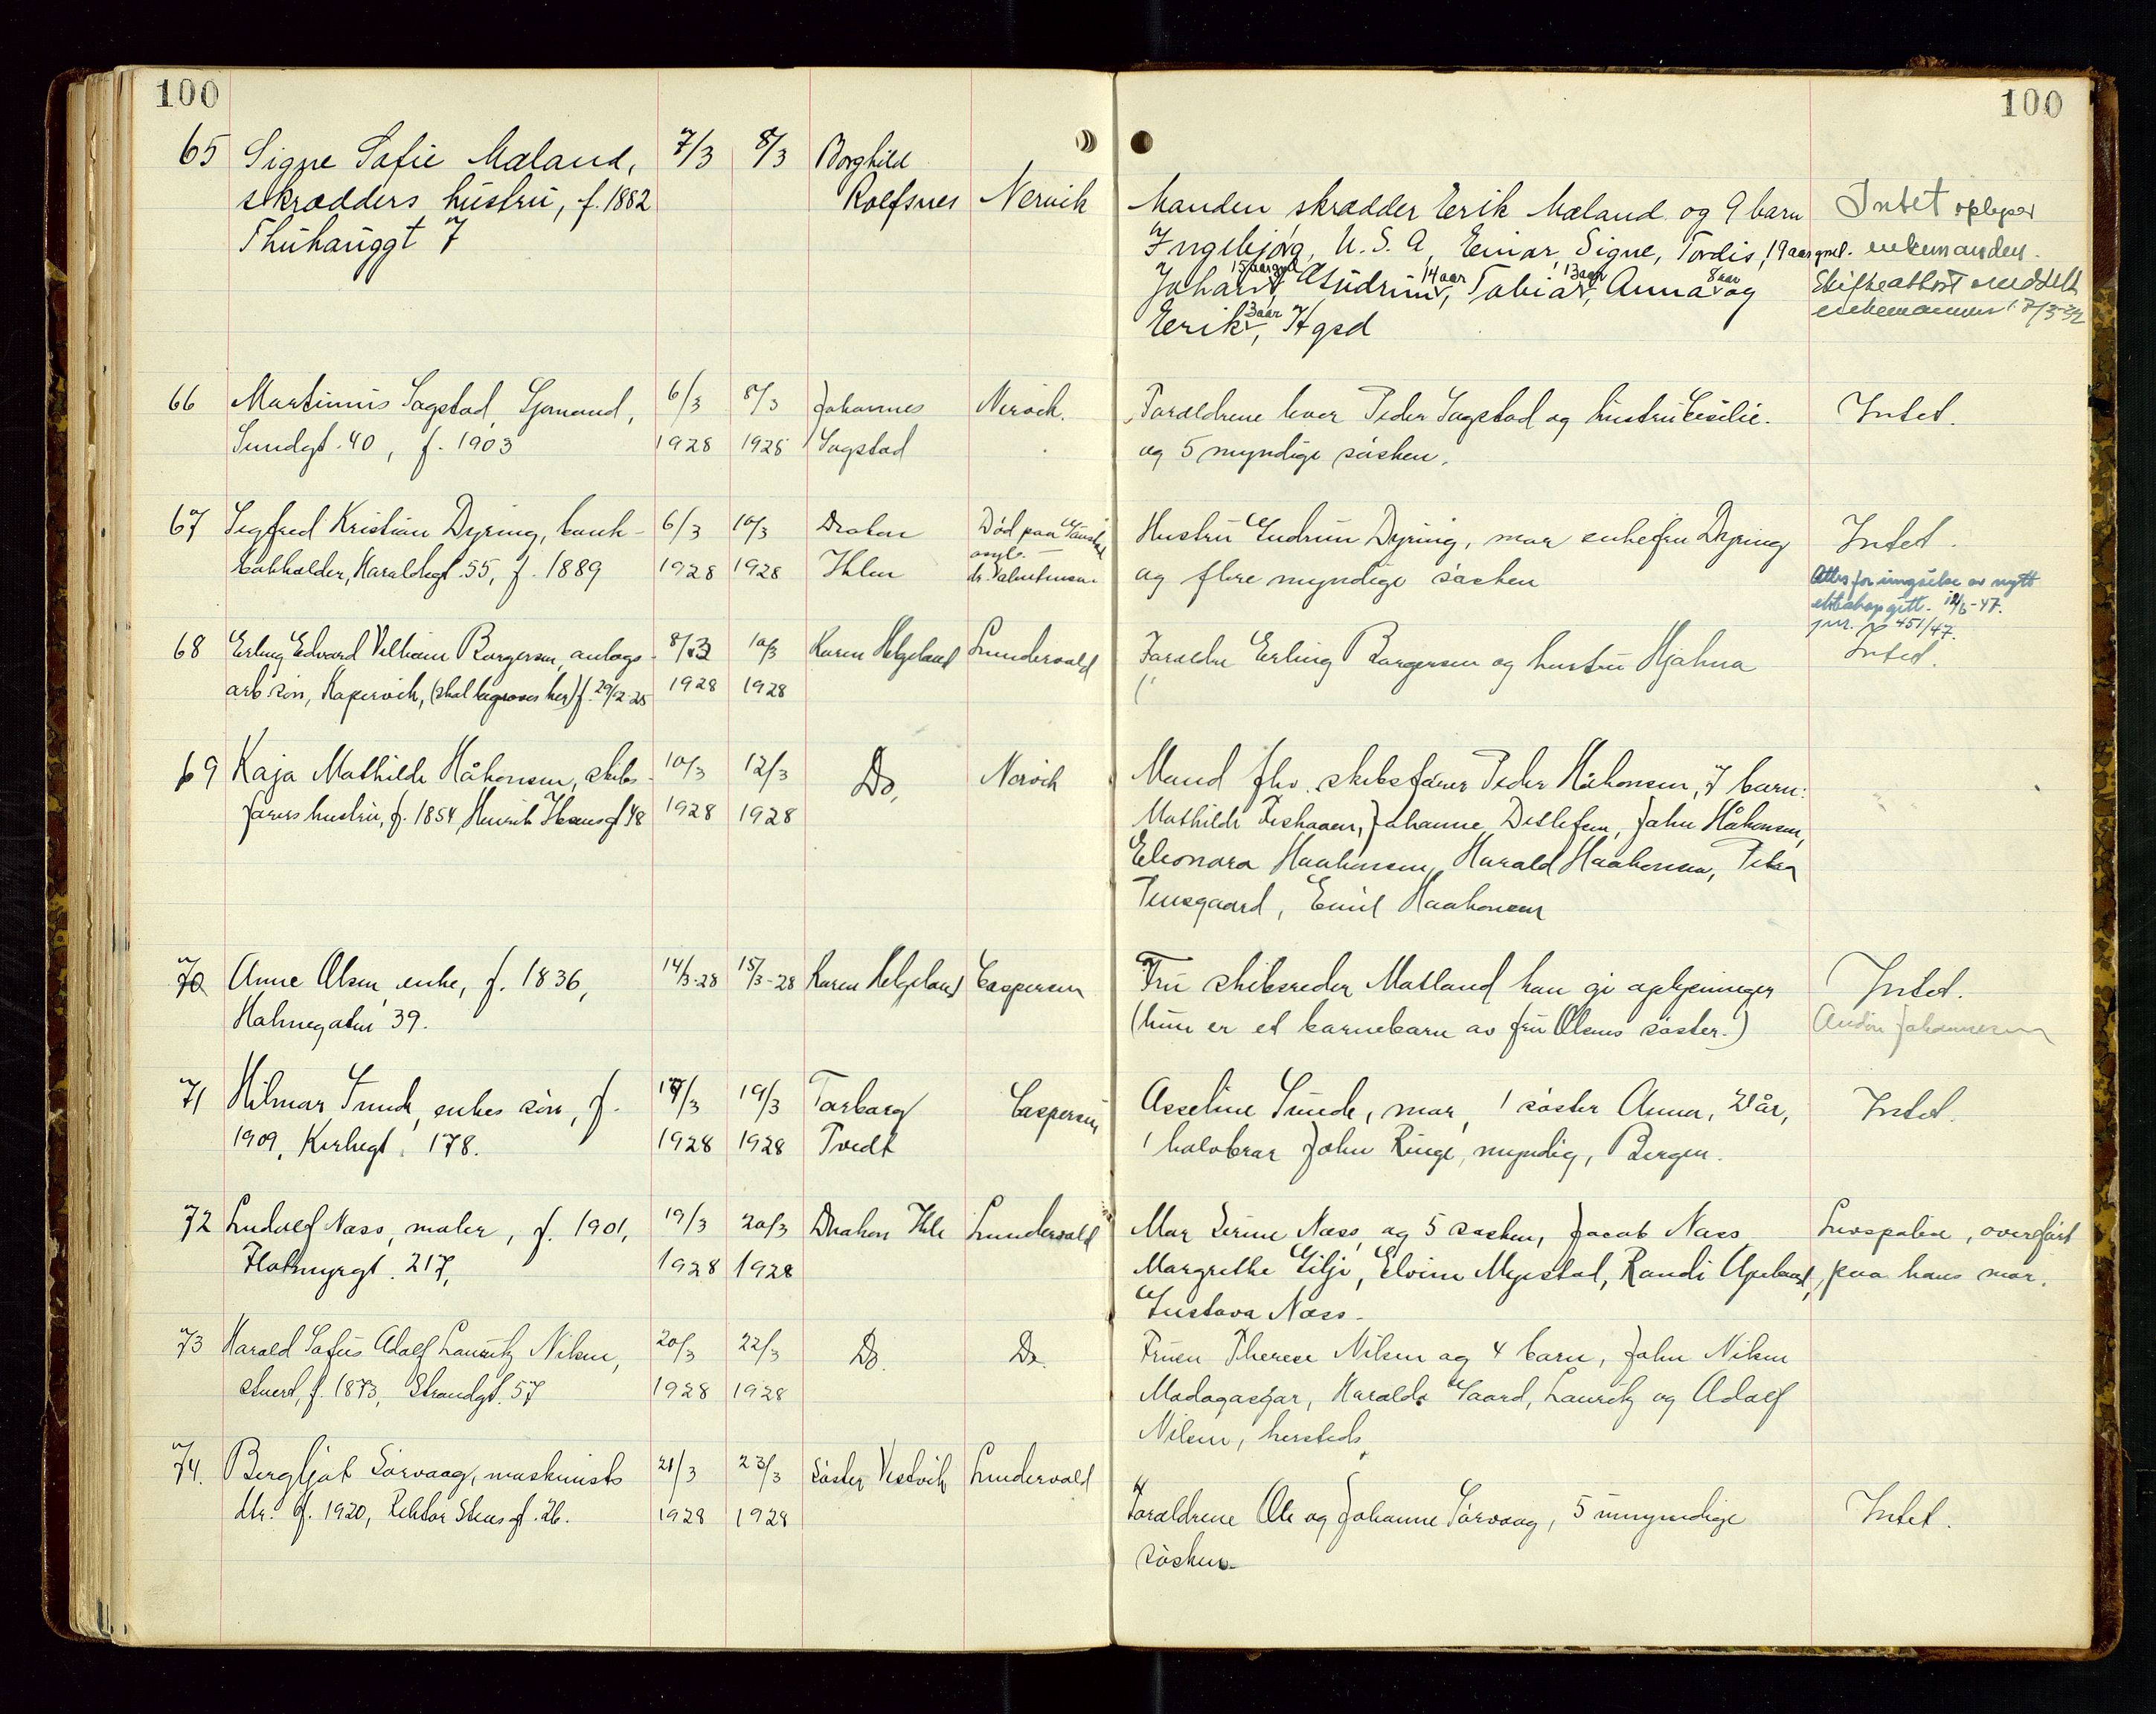 100
100
65 Signe Sofie Mæland, 7/3 8/3 Borghild
skrædders hustru, f. 1882 Rolfsnes Nervik
Thuhauggt 7
Manden skrædder Eerik Mæland og 9 barn Intet oplyser
Ingebjørg, U.S.A, Einar, Signe, Tordis, 19 aar gml. enkemanden.
15 aar gml 14 aar 13 aar 8 aar
Johan, Gudrun, Tobias, Anna og Skifteattest meddelt
3 aar
Eerik, Hgsd enkemannen 7/3-32
66 Martinius Sagstad, Sjømand, 6/3 8/3 Johannes Nervik.
Sundgt. 40, f. 1903 1928 1928 Sagstad
Forældrene lever Peder Sagstad og hustru Cecilie. Intet.
og 5 myndige søsken.
67 Sigfred Kristian Dyring, bank- 6/3 10/3 Diakon Død paa
bokholder, Haraldsgt. 55, f. 1889 1928 1928 Ihlen asyl.
Hustru Gudrun Dyring, mor enkefru Dyring Intet.
og flere myndige søsken
Attest for inngåelse av nytt
ekteskap gitt. 12/6-47.
jnr. 451/47.
68 Erling Edvard Vilhelm Borgersen, anlægs- 8/3 10/3 Karen Helgeland Lundervold
arb. søn, Kopervik, (skal begraves her) f. 29/12-25 1928 1928
Forældre Erling Borgersen og hustru Hjalma Intet.
69 Kaja Mathilde Håkonsen, skibs- 10/3 12/3 Do. Nervik
førers hustru, f. 1854 Henrik Ibsensgt 48 1928 1928
Mand fhv. skibsfører Peder Håkonsen, 7 barn:
Mathilde Fishaaen, Johanne Detlefsen, John Håkonsen,
Eleonora Haakonsen, Harald Haakonsen, Petra
Tensgaard, Emil Haakonsen
70 Anne Olsen, enke, f. 1836, 14/3-28 15/3-28 Karen Helgeland Caspersen
Holmegaten 39.
Fru skibsreder Matland kan gi oplysninger Intet.
(hun er et barnebarn av fru Olsens søster.) Johannesen
71 Hilmar Sunde, enkes søn, f. 17/3 19/3 Torborg Caspersen
1909, Kirkegt. 178. 1928 1928 Tvedt
Asseline Sunde, mor, 1 søster Anna, 21 år, Intet.
1 halvbror John Ringe, myndig, Bergen.
72 Ludolf Næss, maler, f. 1901, 19/3 20/3 Diakon Ihle Lundervold
Flotmyrgt. 217, 1928 1928
Mor Serine Næss, og 5 søsken, Jacob Næss, Livspolise, overført
Margrethe Gilje, Elvine Myrstøl, Randi Apeland, paa hans mor.
Gustava Næss.
73 Harald Sofus Adolf Lauritz Nilsen, 20/3 22/3 Do. Do.
stuert, f. 1873, Strandgt. 57 1928 1928
Fruen Therese Nilsen og 4 barn, John Nilsen
Madagaskar, Haralda Gaard, Lauritz og Adolf
Nilsen, hersteds
74. Bergljot Sørvaag, maskinists 21/3 23/3 Søster Vestvik Lundervold
dtr. f. 1920, Rektor Steensgt. 26. 1928 1928
Forældrene Ole og Johanne Sørvaag, 5 umyndige Intet.
søsken